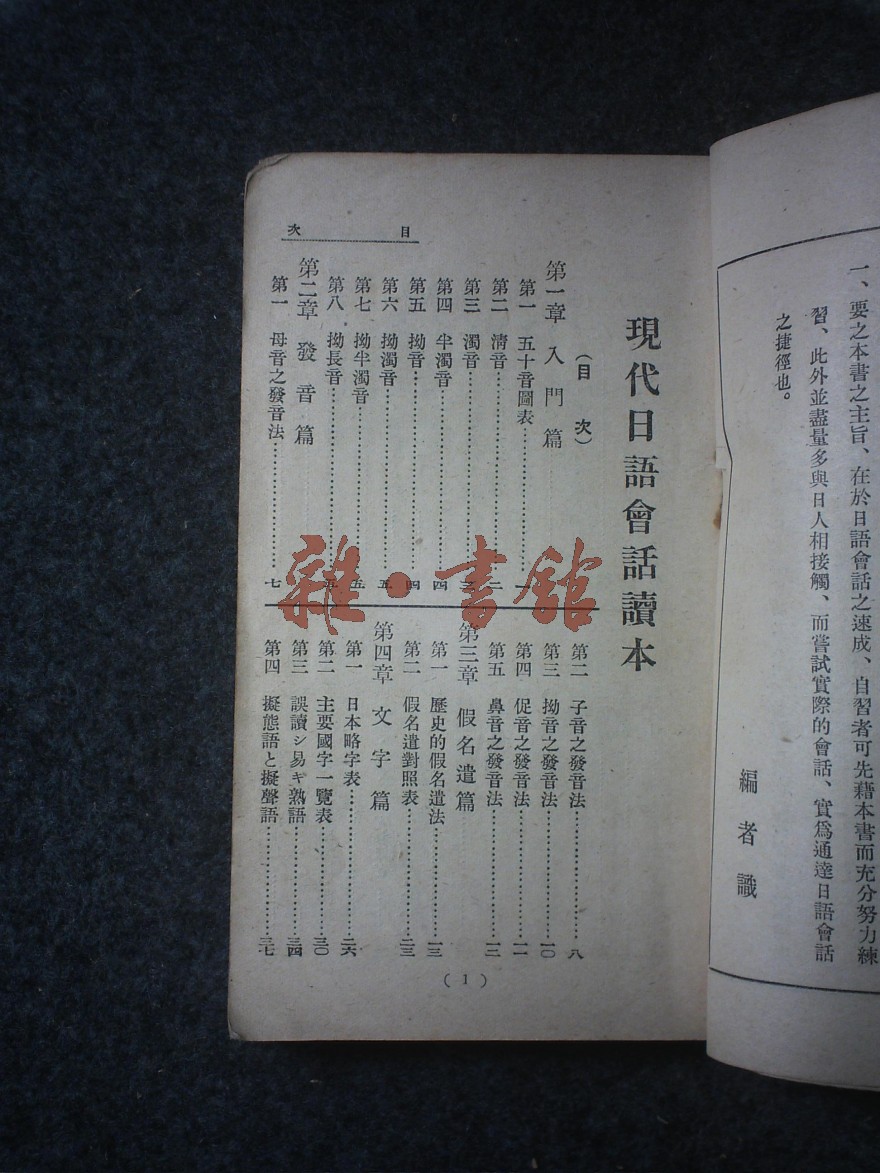 一、要之本書之主旨、在於日語會話之速成、自習者可先藉本書而充分努力練
習、此外並盡量多與日人相接觸、而嘗試實際的會話、實爲通達日語會話
之捷徑也。
編者識
目次
現代日語會話讀本
（目次）
第一章 入門篇
第一 五十音圖表……一
第二 清音……二
第三 濁音……三
第四 半濁音……四
第五 拗音……四
第六 拗濁音……五
第七 拗半濁音……五
第八 拗長音……五
第二章 發音篇
第一 母音之發音法……七
第二 子音之發音法……八
第三 拗音之發音法……一〇
第四 促音之發音法……一一
第五 鼻音之發音法……一二
第三章 假名遣篇
第一 歷史的假名遣法……一三
第二 假名遣對照表……二三
第四章 文字篇
第一 日本略字表……二六
第二 主要國字一覽表……三〇
第三 誤讀シ易ギ熟語……三四
第四 擬態語と擬聲語……三七
(1)
雜·書館